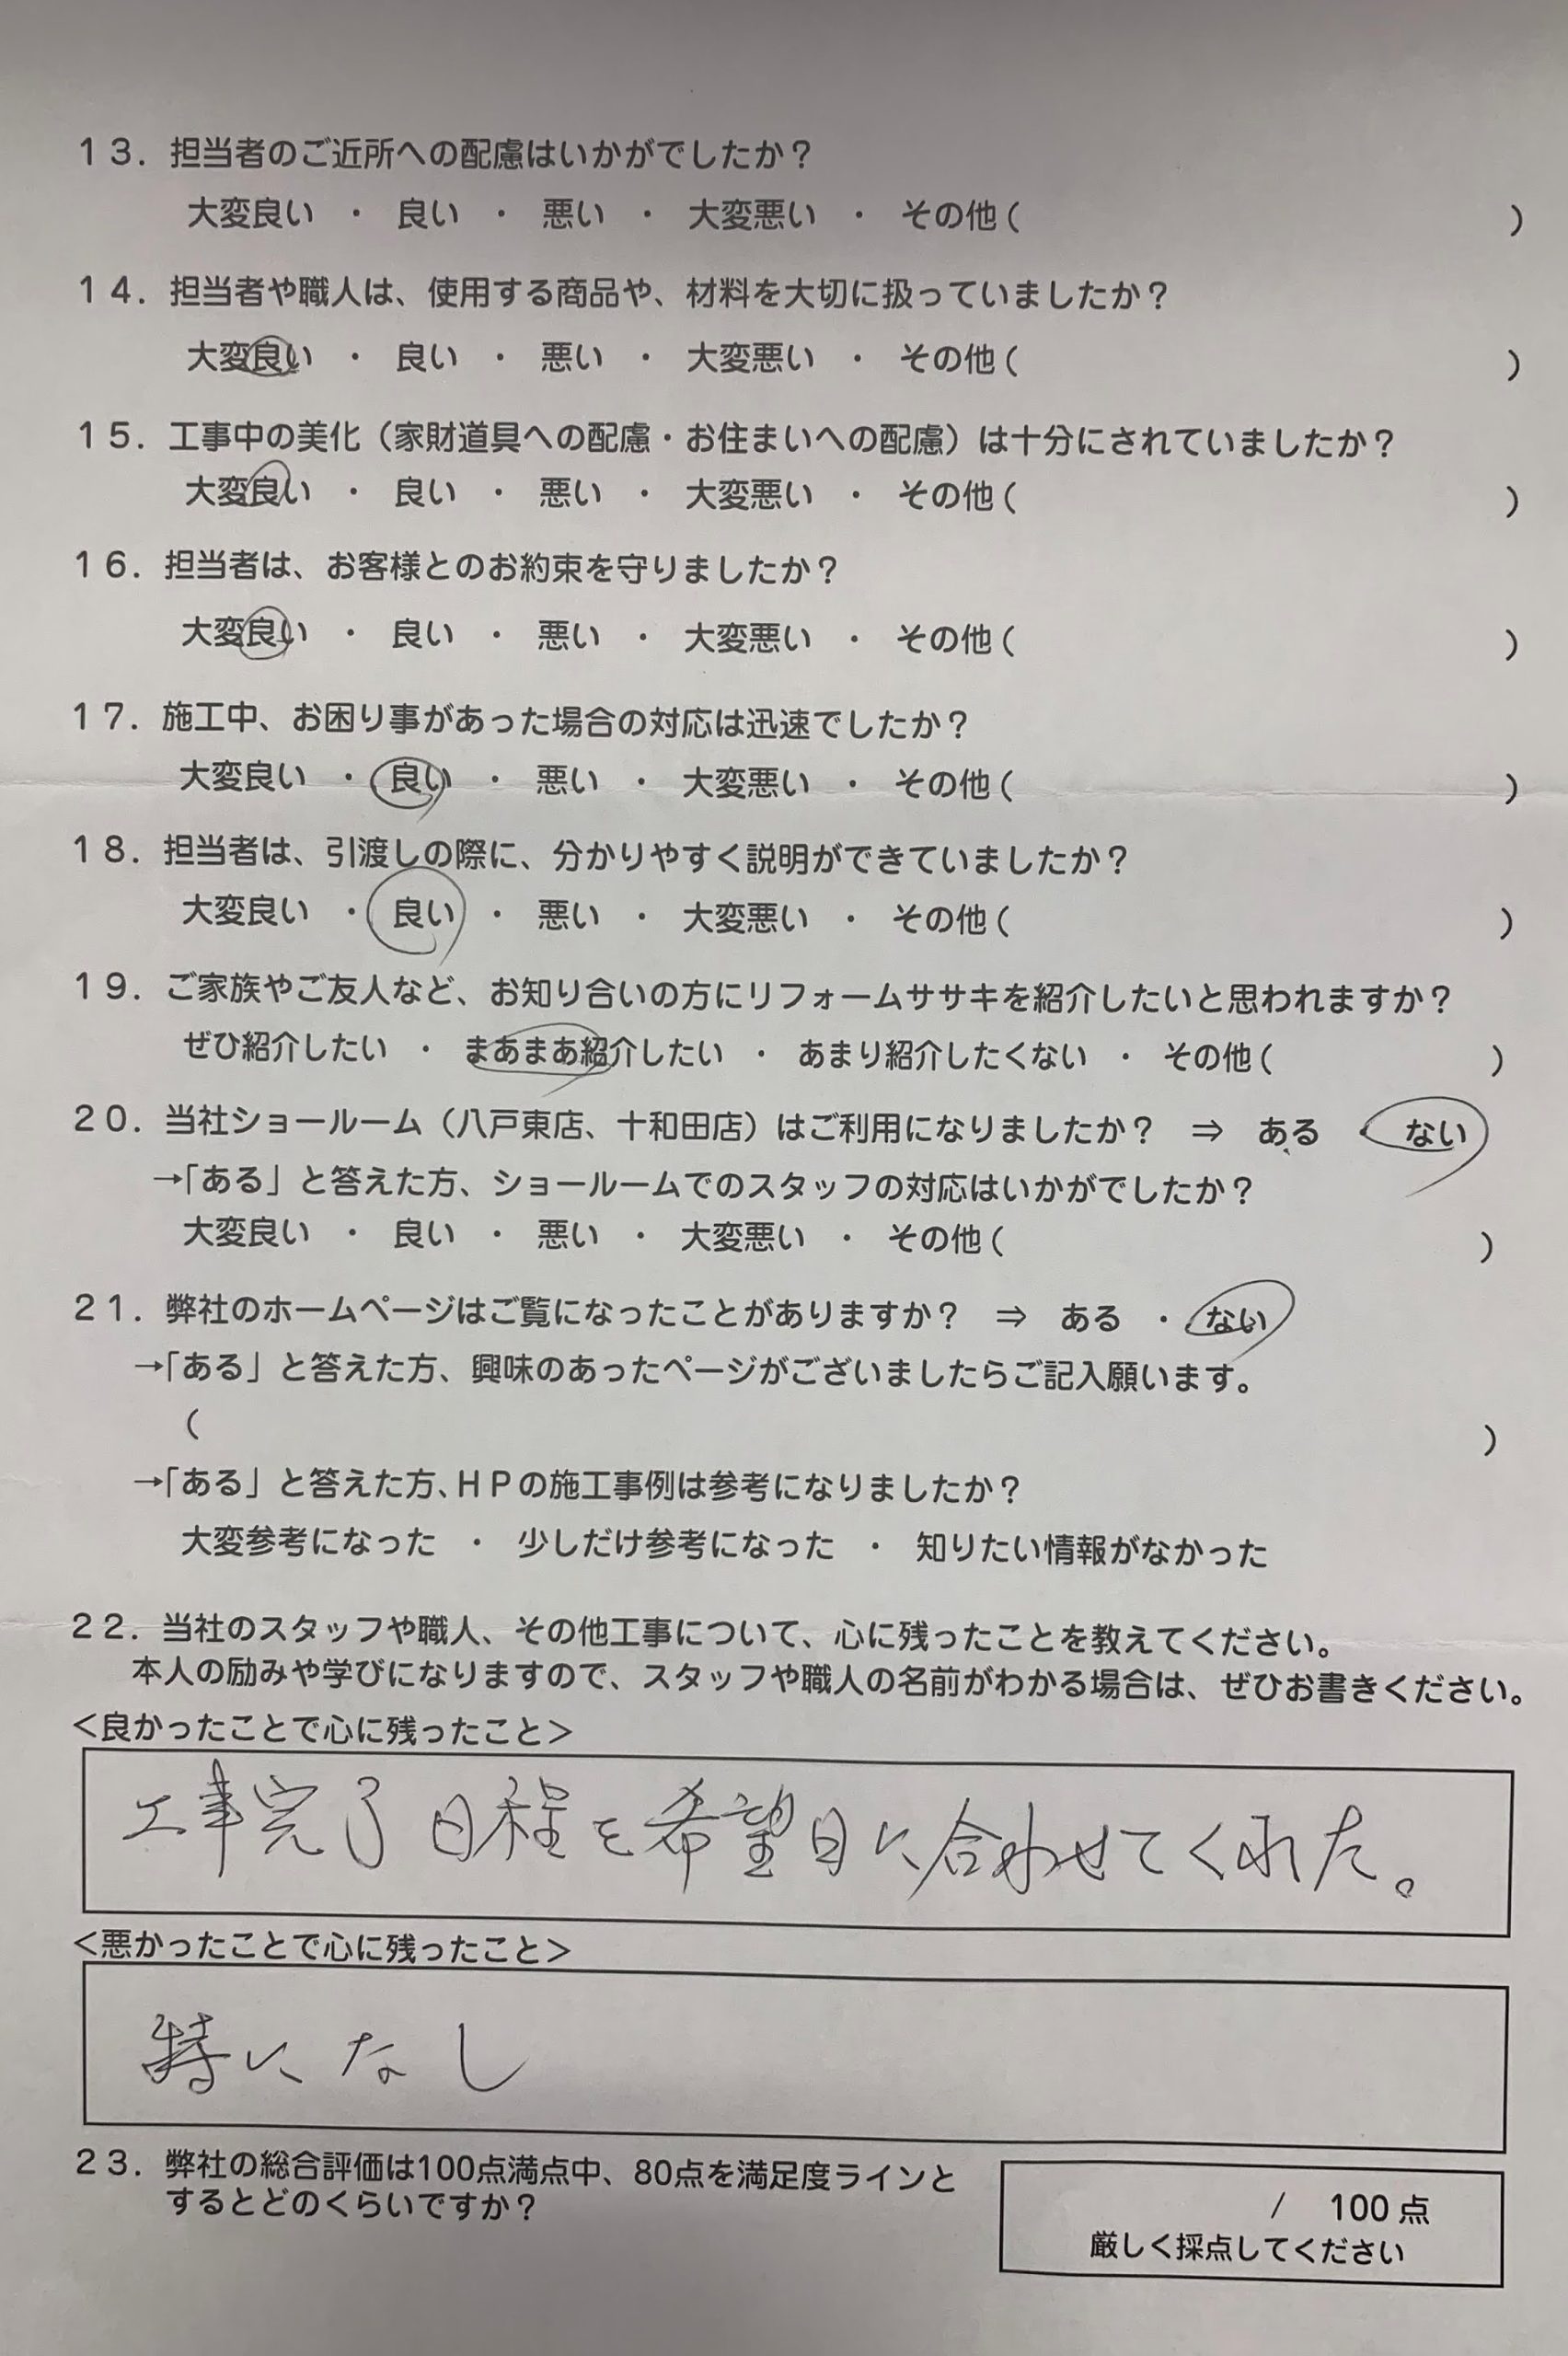 13. 担当者のご近所への配慮はいかがでしたか？
大変良い ・ 良い ・ 悪い ・ 大変悪い ・ その他（ ）
14. 担当者や職人は、使用する商品や、材料を大切に扱っていましたか？
大変良い ・ 良い ・ 悪い ・ 大変悪い ・ その他（ ）
15. 工事中の美化（家財道具への配慮・お住まいへの配慮）は十分にされていましたか？
大変良い ・ 良い ・ 悪い ・ 大変悪い ・ その他（ ）
16. 担当者は、お客様とのお約束を守りましたか？
大変良い ・ 良い ・ 悪い ・ 大変悪い ・ その他（ ）
17. 施工中、お困り事があった場合の対応は迅速でしたか？
大変良い ・ 良い ・ 悪い ・ 大変悪い ・ その他（ ）
18. 担当者は、引渡しの際に、分かりやすく説明ができていましたか？
大変良い ・ 良い ・ 悪い ・ 大変悪い ・ その他（ ）
19. ご家族やご友人など、お知り合いの方にリフォームササキを紹介したいと思われますか？
ぜひ紹介したい ・ まあまあ紹介したい ・ あまり紹介したくない ・ その他（ ）
20. 当社ショールーム（八戸東店、十和田店）はご利用になりましたか？ ⇒ ある ・ ない
→「ある」と答えた方、ショールームでのスタッフの対応はいかがでしたか？
大変良い ・ 良い ・ 悪い ・ 大変悪い ・ その他（ ）
21. 弊社のホームページはご覧になったことがありますか？ ⇒ ある ・ ない
→「ある」と答えた方、興味のあったページがございましたらご記入願います。
（ ）
→「ある」と答えた方、ＨＰの施工事例は参考になりましたか？
大変参考になった ・ 少しだけ参考になった ・ 知りたい情報がなかった
22. 当社のスタッフや職人、その他工事について、心に残ったことを教えてください。
本人の励みや学びになりますので、スタッフや職人の名前がわかる場合は、ぜひお書きください。
＜良かったことで心に残ったこと＞
工事完了日程を希望日に合わせてくれた。
＜悪かったことで心に残ったこと＞
特になし
23. 弊社の総合評価は100点満点中、80点を満足度ラインと
するとどのくらいですか？
/ 100 点
厳しく採点してください